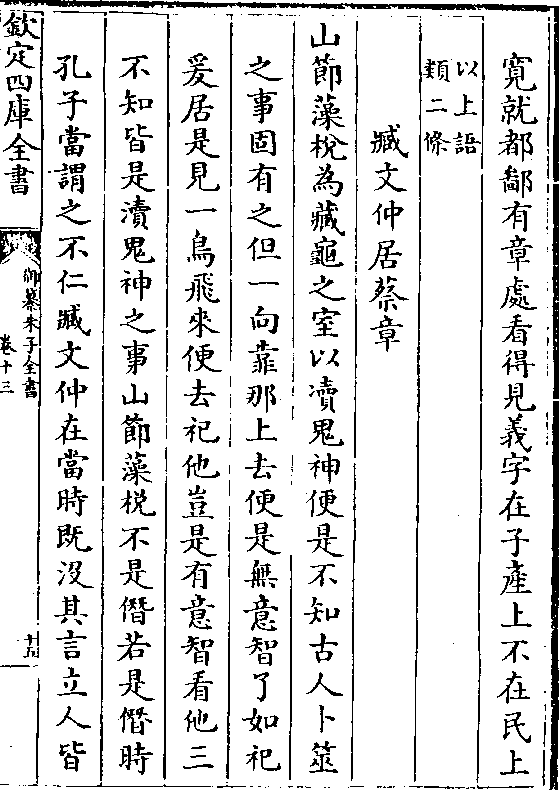 寛就都鄙有章處看得見義字在子產上不在民上
以上語
類二條
臧文仲居蔡章
山節藻梲為藏龜之室以瀆鬼神便是不知古人卜筮
之事固有之但一向靠那上去便是無意智了如祀
爰居是見一鳥飛來便去祀他豈是有意智看他三
不知皆是瀆鬼神之事山節藻梲不是僭若是僭時
孔子當謂之不仁臧文仲在當時既沒其言立人皆
欽定四庫全書
御纂朱子全書
卷十三